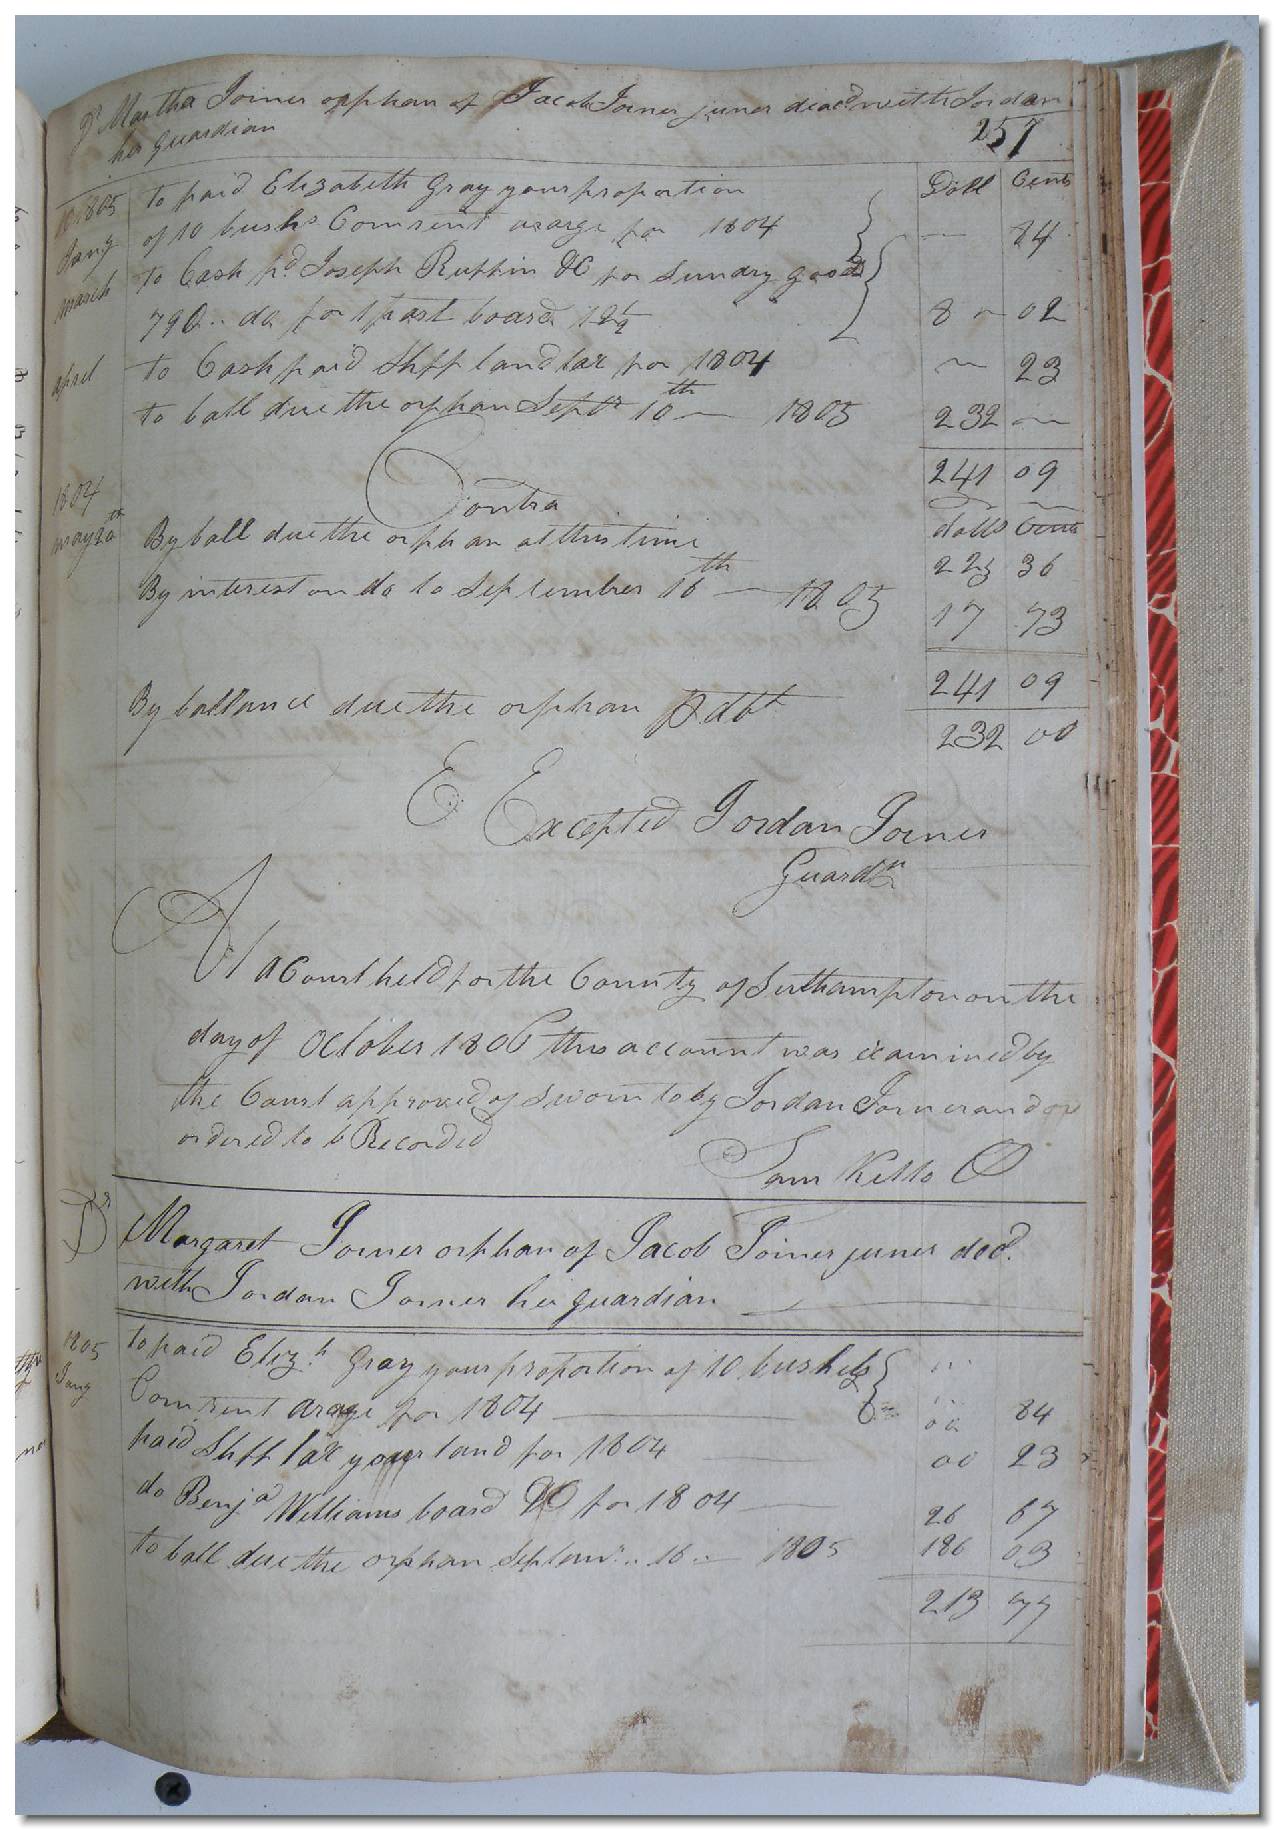 Dr Martha Joiner orphan of Jacob Joiner juner deacd with Jordan
her Guardian
257
Doll Cents
1805 to paid Elizabeth Gray your proportion
Jany of 10 bushs Corn rent arage for 1804 — 84
march to Cash pd Joseph Ruffin &C for Sundry goods
790.. do for part board 8 02
april to Cash paid Shff land tax for 1804 — 23
to ball due the orphan Septr 16th — 1805 232 —
241 09
Contra
dolls Cents
1804
may 20th By ball due the orphan at this time 223 36
By interest on do to September 16th — 1805 17 73
241 09
By ballance due the orphan P dbt 232 00
E Excepted Jordan Joiner
Guardn
At a Court held for the County of Suthampton on the
day of October 1806 this account was examined by
the Court approved of Sworn to by Jordan Joiner and
ordered to b Recorded
Sam Kello C
Dr Margaret Joiner orphan of Jacob Joiner juner decd.
with Jordan Joiner her guardian
1805 to paid Eliz.h Gray your proportion of 10 bushels
Jany Corn rent arage for 1804 — 00 84
paid Shff tax your land for 1804 — 00 23
do Benja Williams board &C for 1804 — 26 67
to ball due the orphan Septemr.. 16.. — 1805 186 03
213 77